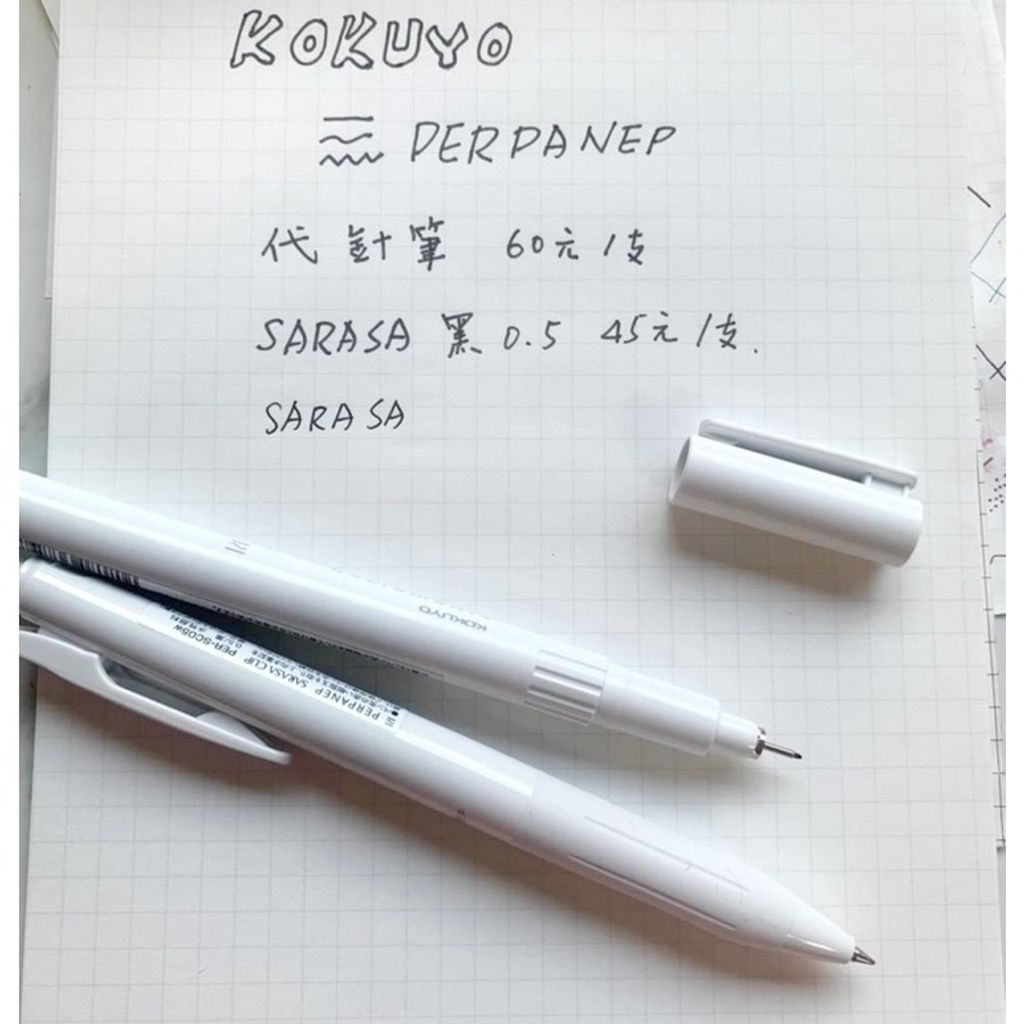 KOKUYO
PERPANEP
代針筆 60元/支
SARASA 黑 0.5 45元/支.
SARASA
KOKUYO
PERPANEP SARASA CLIP PER-SC05W